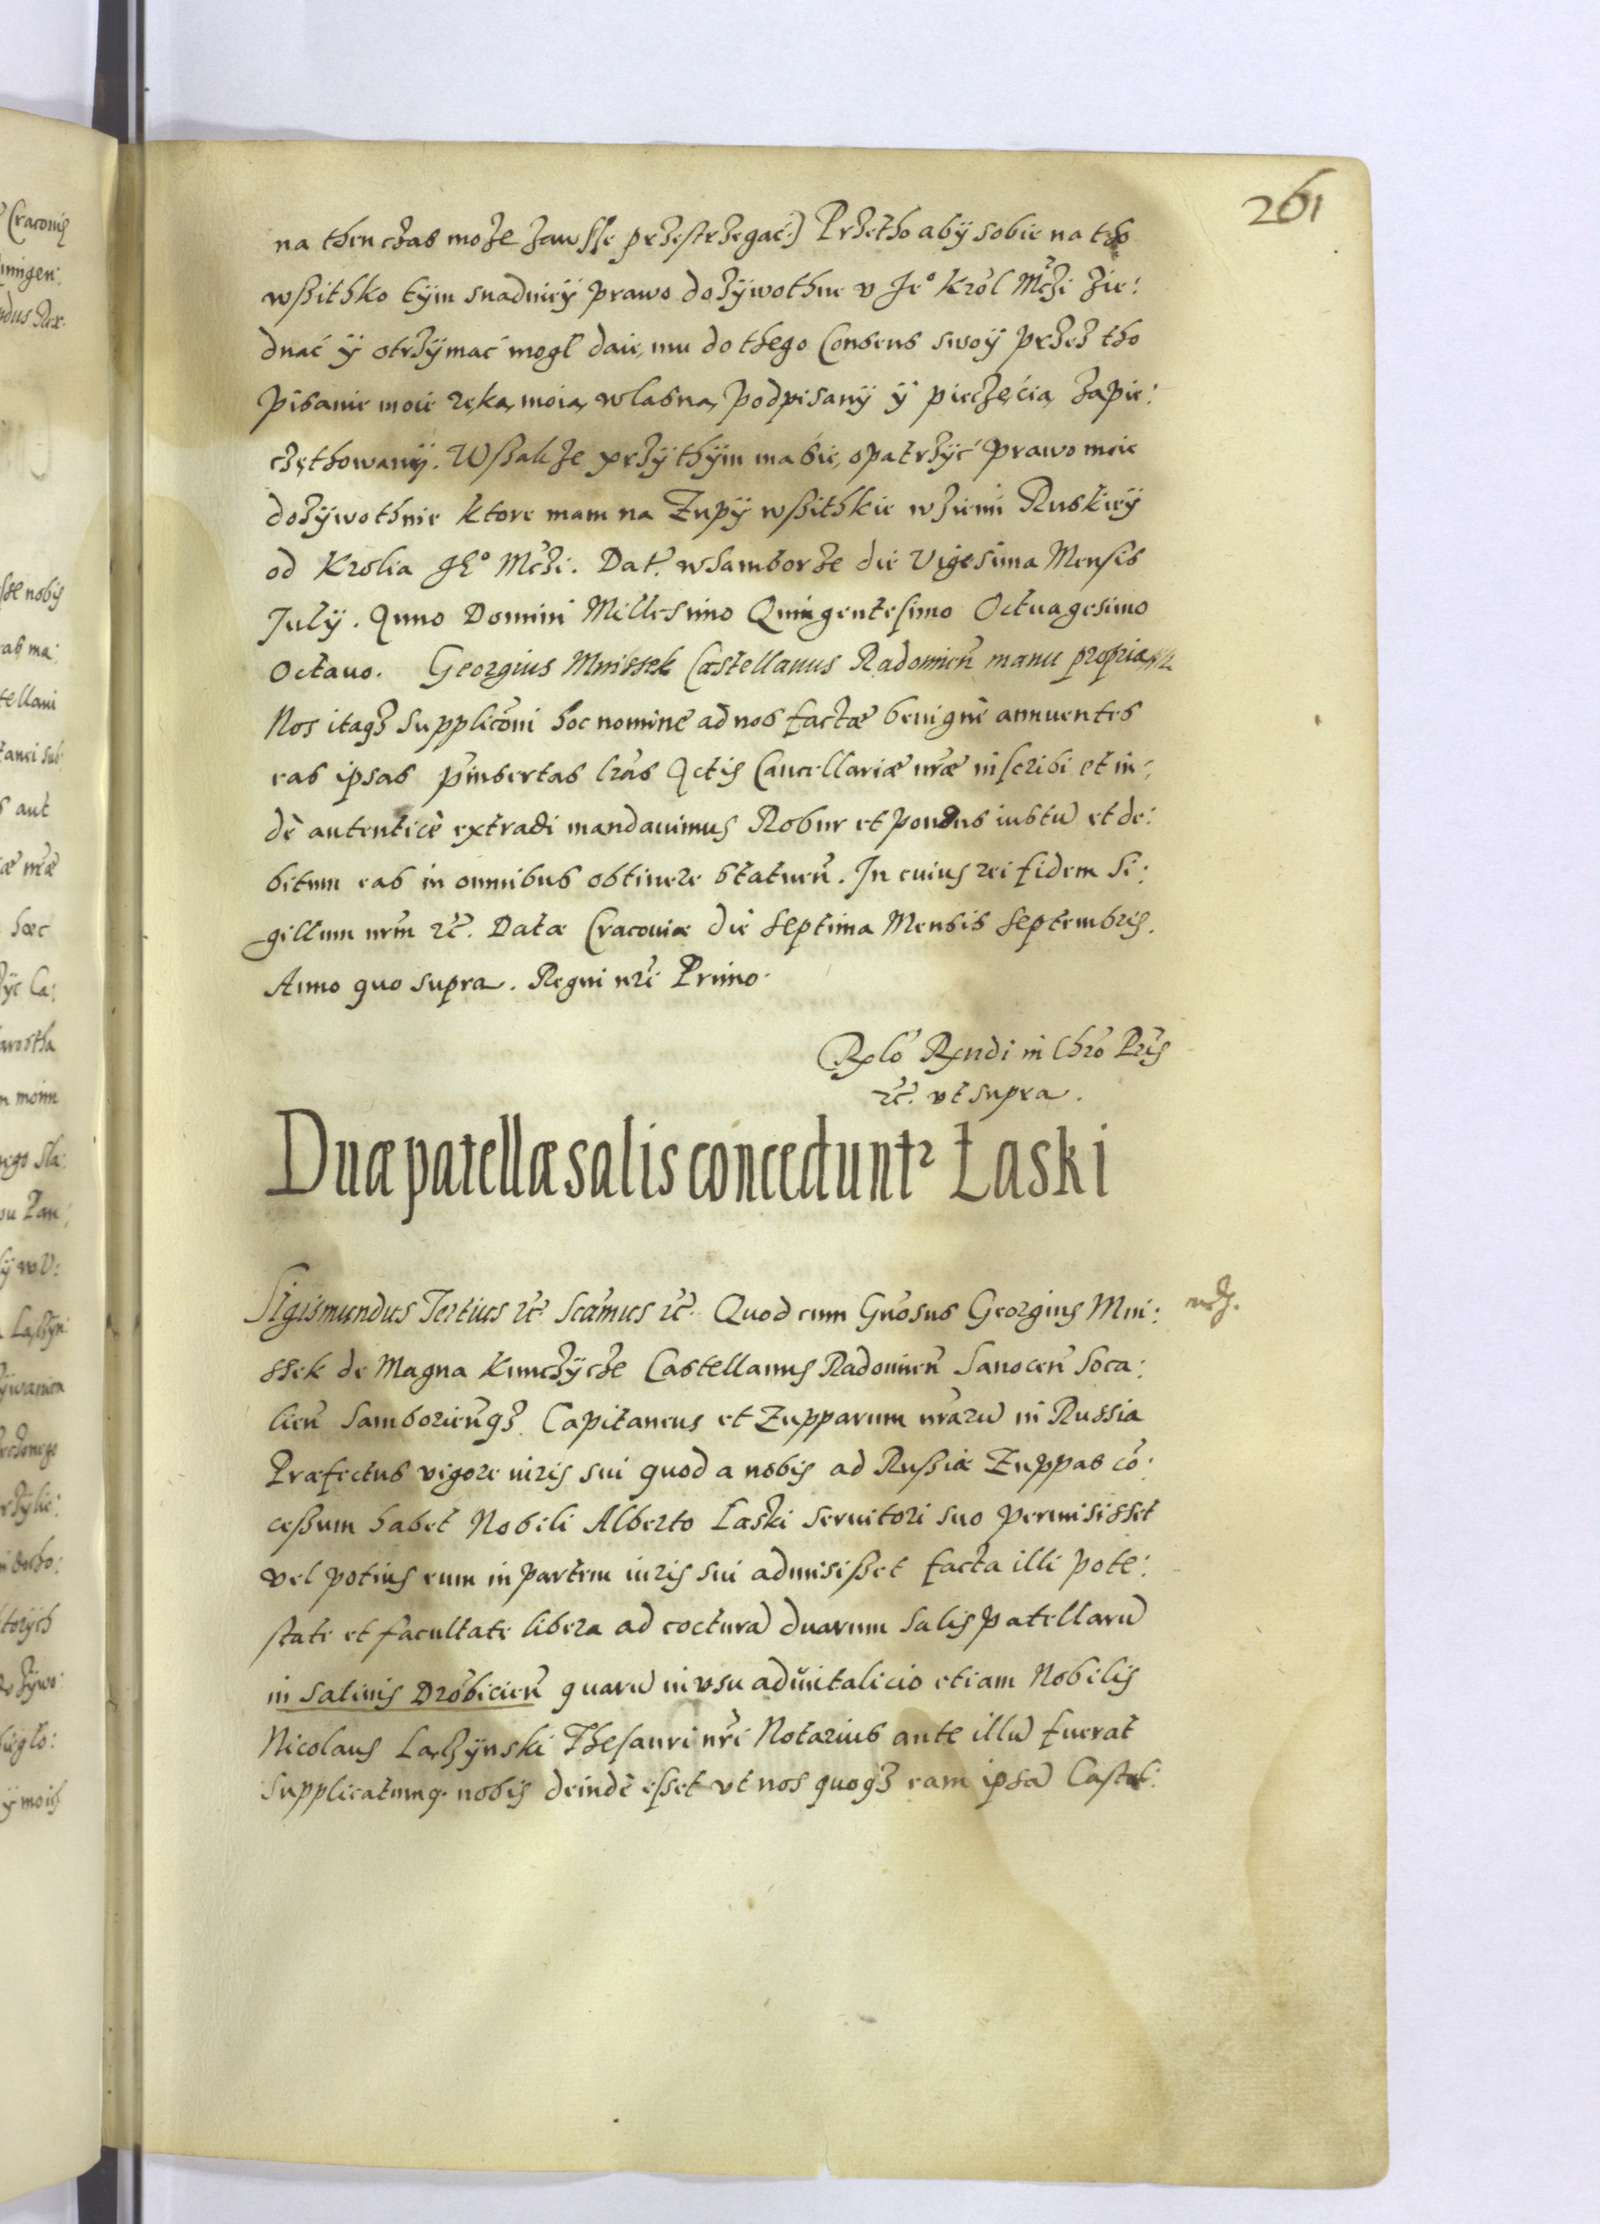 261
na then czas może zawsse przestrzegać) Przetho aby sobie na tho
wßithko tÿm snadnieÿ prawo dożÿwothne v Je° Krol Mczi zie:
dnać ÿ otrzÿmać mogł daię mu do thego Consens swoÿ przez tho
pisanie moie ręką moią własną podpisanÿ ÿ pieczęcią zapie:
częthowanÿ. Wßakże przÿ thÿm ma się opatrzÿć prawo moie
dożÿwothnie ktore mam na Zupÿ wßithkie w ziemi Ruskieÿ
od Krolia Je° Mczi. Dat. w Samborze die Vigesima Mensis
Julÿ. Anno Domini Millesimo Quingentesimo Octuagesimo
Octauo. Georgius Mnissek Castellanus Radomien manu propria
Nos itaq3 supplicõni hoc nomine ad nos factæ benignè annuentes
eas ipsas p̃insertas lr̃as Actis Cancellariæ nr̃æ inscribi et in:
dè autenticè extradi mandauimus Robur et pondus iustū et de:
bitum eas in omnibus obtinere statuen̄. In cuius rei fidem Si:
gillum nrm̃ rc̃. Datæ Cracouiæ die septima Mensis Septembris.
Anno quo supra. Regni nrĩ Primo.
Relõ Rendi in Chrõ Pris
rc̃. vt supra.
Duæ patellæ salis concedunt² Łaski
Sigismundus Tertius rc̃ Scãmus rc̃. Quod cum Gnõsus Georgius Mni:
ssek de Magna Kunczÿcze Castellanus Radomien̄ Sanocen̄ Soca:
lien̄ Samborien̄q3 Capitaneus et Zupparum nr̃arū in Russia
Præfectus vigore iuris sui quod a nobis ad Rußiæ Zuppas cõ:
ceßum habet Nobili Alberto Łaski seruitori suo permisisset
vel potius eum in partem iuris sui admisißet facta illi pote:
state et facultate libera ad cocturā duarum salis patellarū
in salinis Drohicien̄ quarū in vsu aduitalicio etiam Nobilis
Nicolaus Lashÿnski Thesauri nrĩ Notarius ante illū fuerat
supplicatumq. nobis deindè esset vt nos quoq3 eam ipsā Castel: